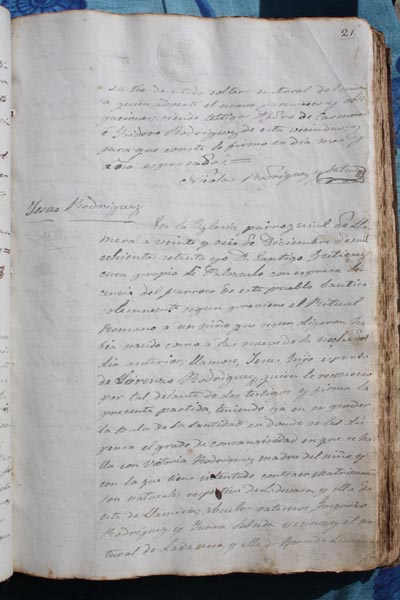 21.
su tio de estado soltero natural del mismo
a quien adverti el nuevo parentesco y obli-
gaciones, siendo testigos Pedro de Carmona
é Isidoro Rodriguez, de esta vecindad, y
para que conste lo firmo en dia mes y
año expresados =
Nicolas Rodriguez y
Jesus Rodriguez
En la Yglesia parroquial de Lla-
mera á veinte y seis de Diciembre de mil
ochocientos setenta yo D. Santiago Gutierrez
cura propio de con espresa li-
cencia del parroco de este pueblo bautice
solemnemente segun previene el Ritual
Romano a un niño que segun digeron ha-
bia nacido como á las nueve de la
dia anterior, llamose, Jesus, hijo
de Lorenzo Rodriguez, quien lo reconocio
por tal delante de dos testigos y firma la
presente partida, teniendo ya en su poder
la bula de Su Santidad en donde se les dis-
pensa el grado de consanguinidad en que se ha-
lla con Rodriguez, madre del niño, y
con la que tiene intentado contraer Matrimonio
son naturales respective de y ella de
este de Llamera; abuelos paternos
Rodriguez, y Juana vecinos y el na-
tural de y ella de